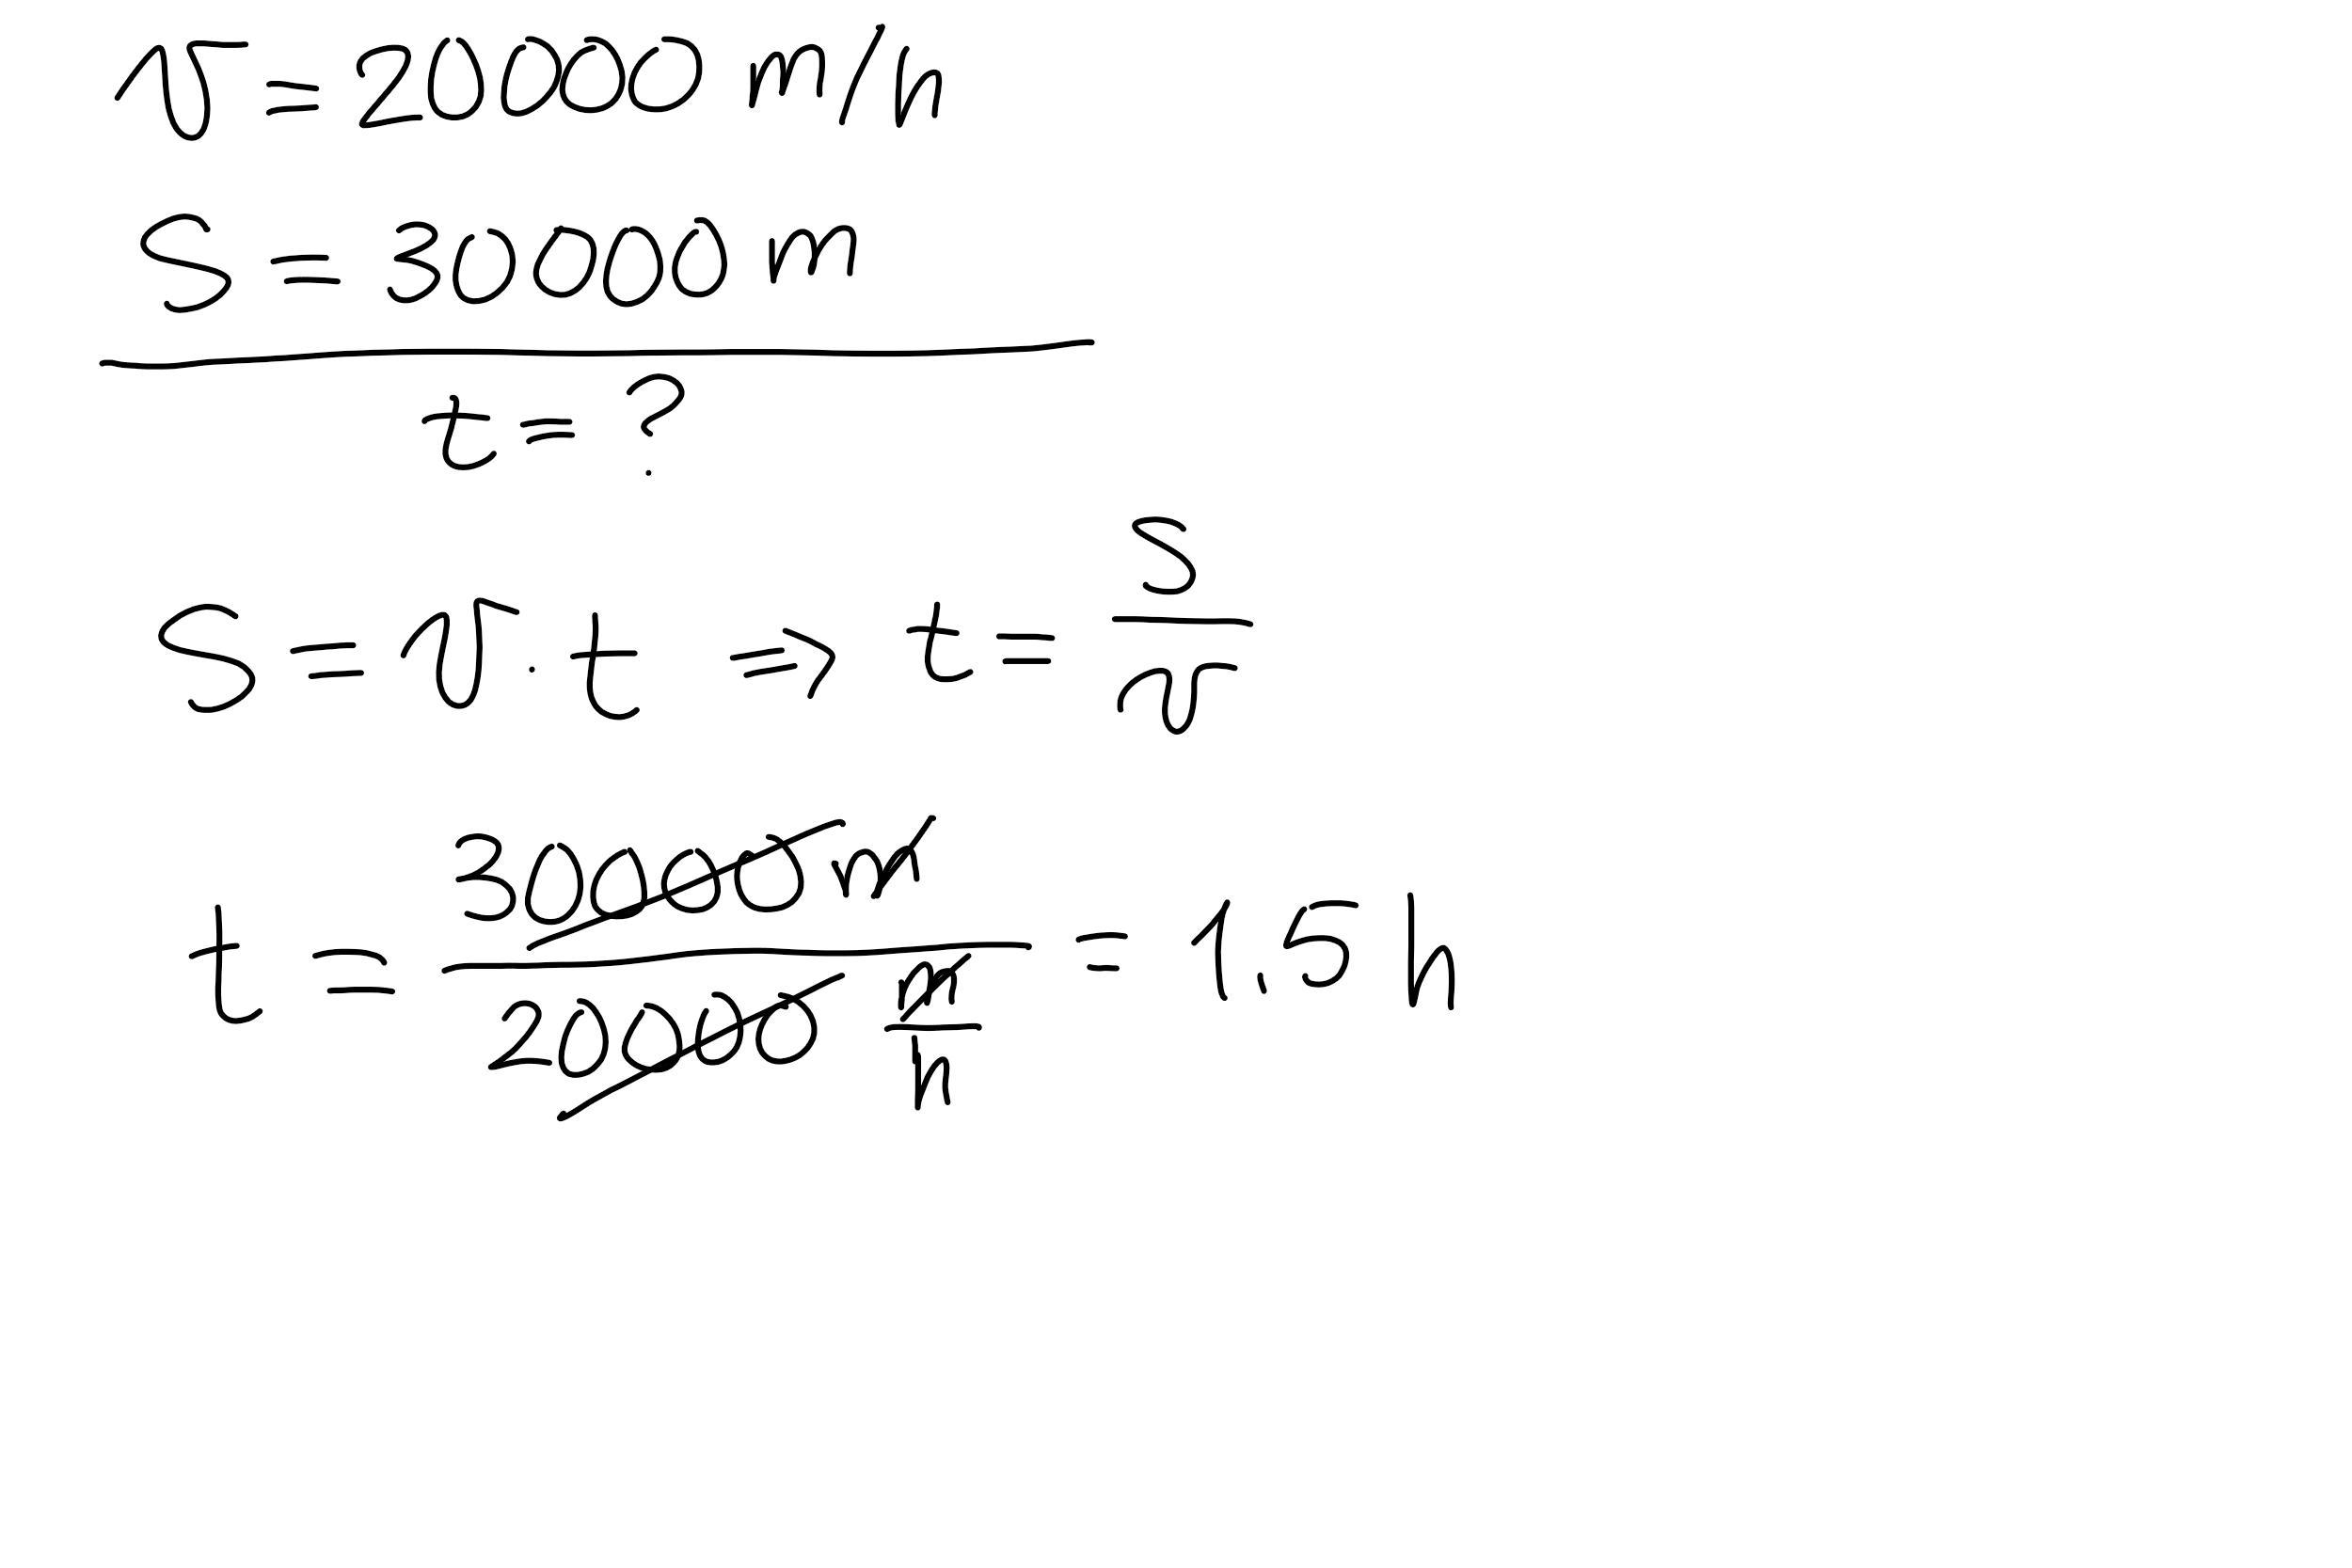 v = 20000 m/h
S = 30000 m
t = ?
S = v · t ⇒ t = S/v
t = 30000 m / 20000 m/h = 1.5 h